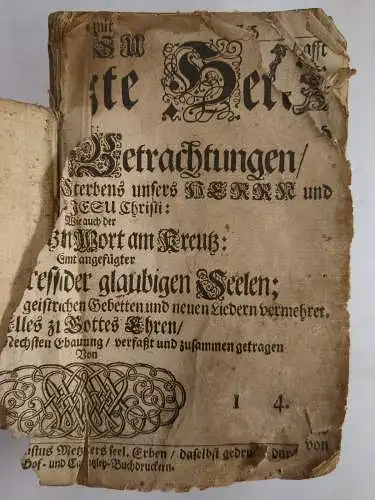 mit
afft
zte Hertz
Betrachtungen/
Sterbens unsers HERRN und
JESU Christi:
Wie auch der
Wort am Kreutz:
Samt angefügter
der glaubigen Seelen;
geistrichen Gebetten und neuen Liedern vermehret.
Alles zu Gottes Ehren/
Nechsten Erbauung/ verfaßt und zusammen getragen
Von
1 4.
Metzlers seel. Erben/ daselbst gedruckt durch
von
Hof- und Cantzley-Buchdruckern.